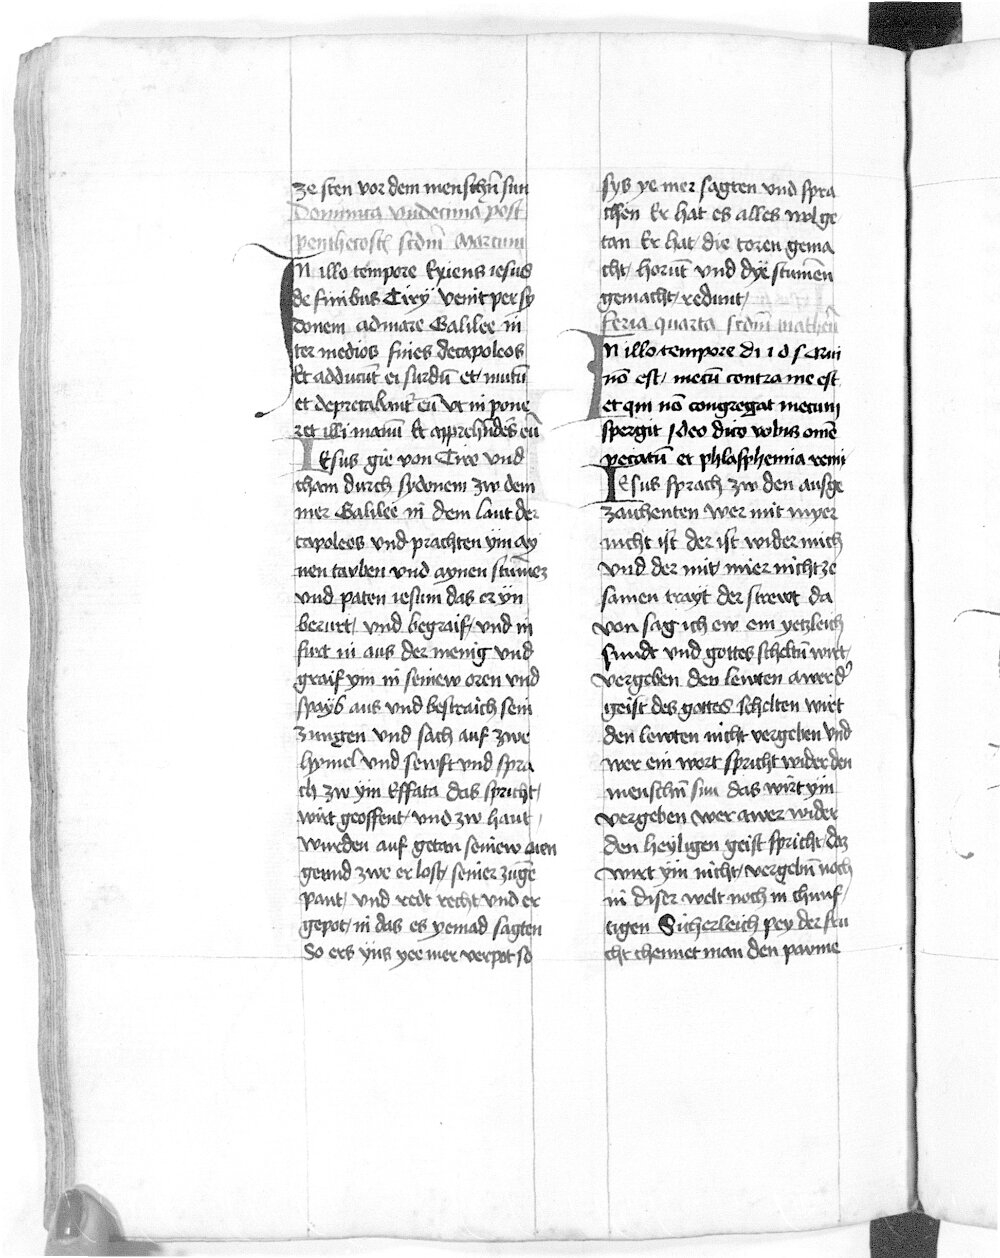 ze sten vor dem menschn̄ sun
Dominica vndecima post
penthecosts̄ scdm̄ Marcum
In illo tempore Exiens iesus
de finibus Tirÿ venit per sy
donem ad mare Galilee in
ter medios fines decapoleos
Et adducūt ei surdū et mutū
et deprecabant̄ eū vt in pone
ret illi manū Et apprehndēs eū
Iesus gie von Tiro vnd
cham durch sydonem zw dem
mer Galilee in dem laut der
capoleos vnd prachten ÿm ay
nen tauben vnd aynen stūmez
vnd paten iesum das er ÿn
berurt vnd begraif vnd in
furt in aus der menig vnd
graif ÿm in seinew oren vnd
spayb aus vnd bestraich sein
zungen vnd sach auf zwe
hymel vnd sewft vnd spra
ch zw ÿm Effata das spricht
wirt geoffent vnd zw hant
wurden auf getan seinew oren
geund zwe erlost seiner zuge̅
pant vnd redt recht vnd er
gepot in das es yemād sagten
So ers ÿns yee mer verpot so
sys ye mer sagten vnd spra
chen Er hat es alles wol ge
tan Er hat die toren gema
cht horūt vnd dye stumen
gemacht redunt
feria quarta scdm̄ matheū
In illo tempore di i d s Qui
nō est mecū contra me est
et qui nō congregat mecum
spergit Ideo dico vobis omē
pecatū et phlasphemia remi
Iesus sprach zw den ausge
zaichenten wer mit myer
nicht ist der ist wider mich
vnd der mit mier nicht ze
samen trayt der strewt da
von sag ich ew ein yetzleich
sundt vnd gottes scheltū wirt
vergeben den lewten awer d'
geist des gottes schelten wirt
den lewten nicht vergeben vnd
wer ein wort spricht wider den
menschn̄ sun das wirt ÿm
vergeben wer awer wider
den heyligen geist spricht daz
wirt ÿm nicht vergebn̄ noch
in diser welt noch in chunf
tigen Sicherleich pey der fru
cht chennet man den pawme